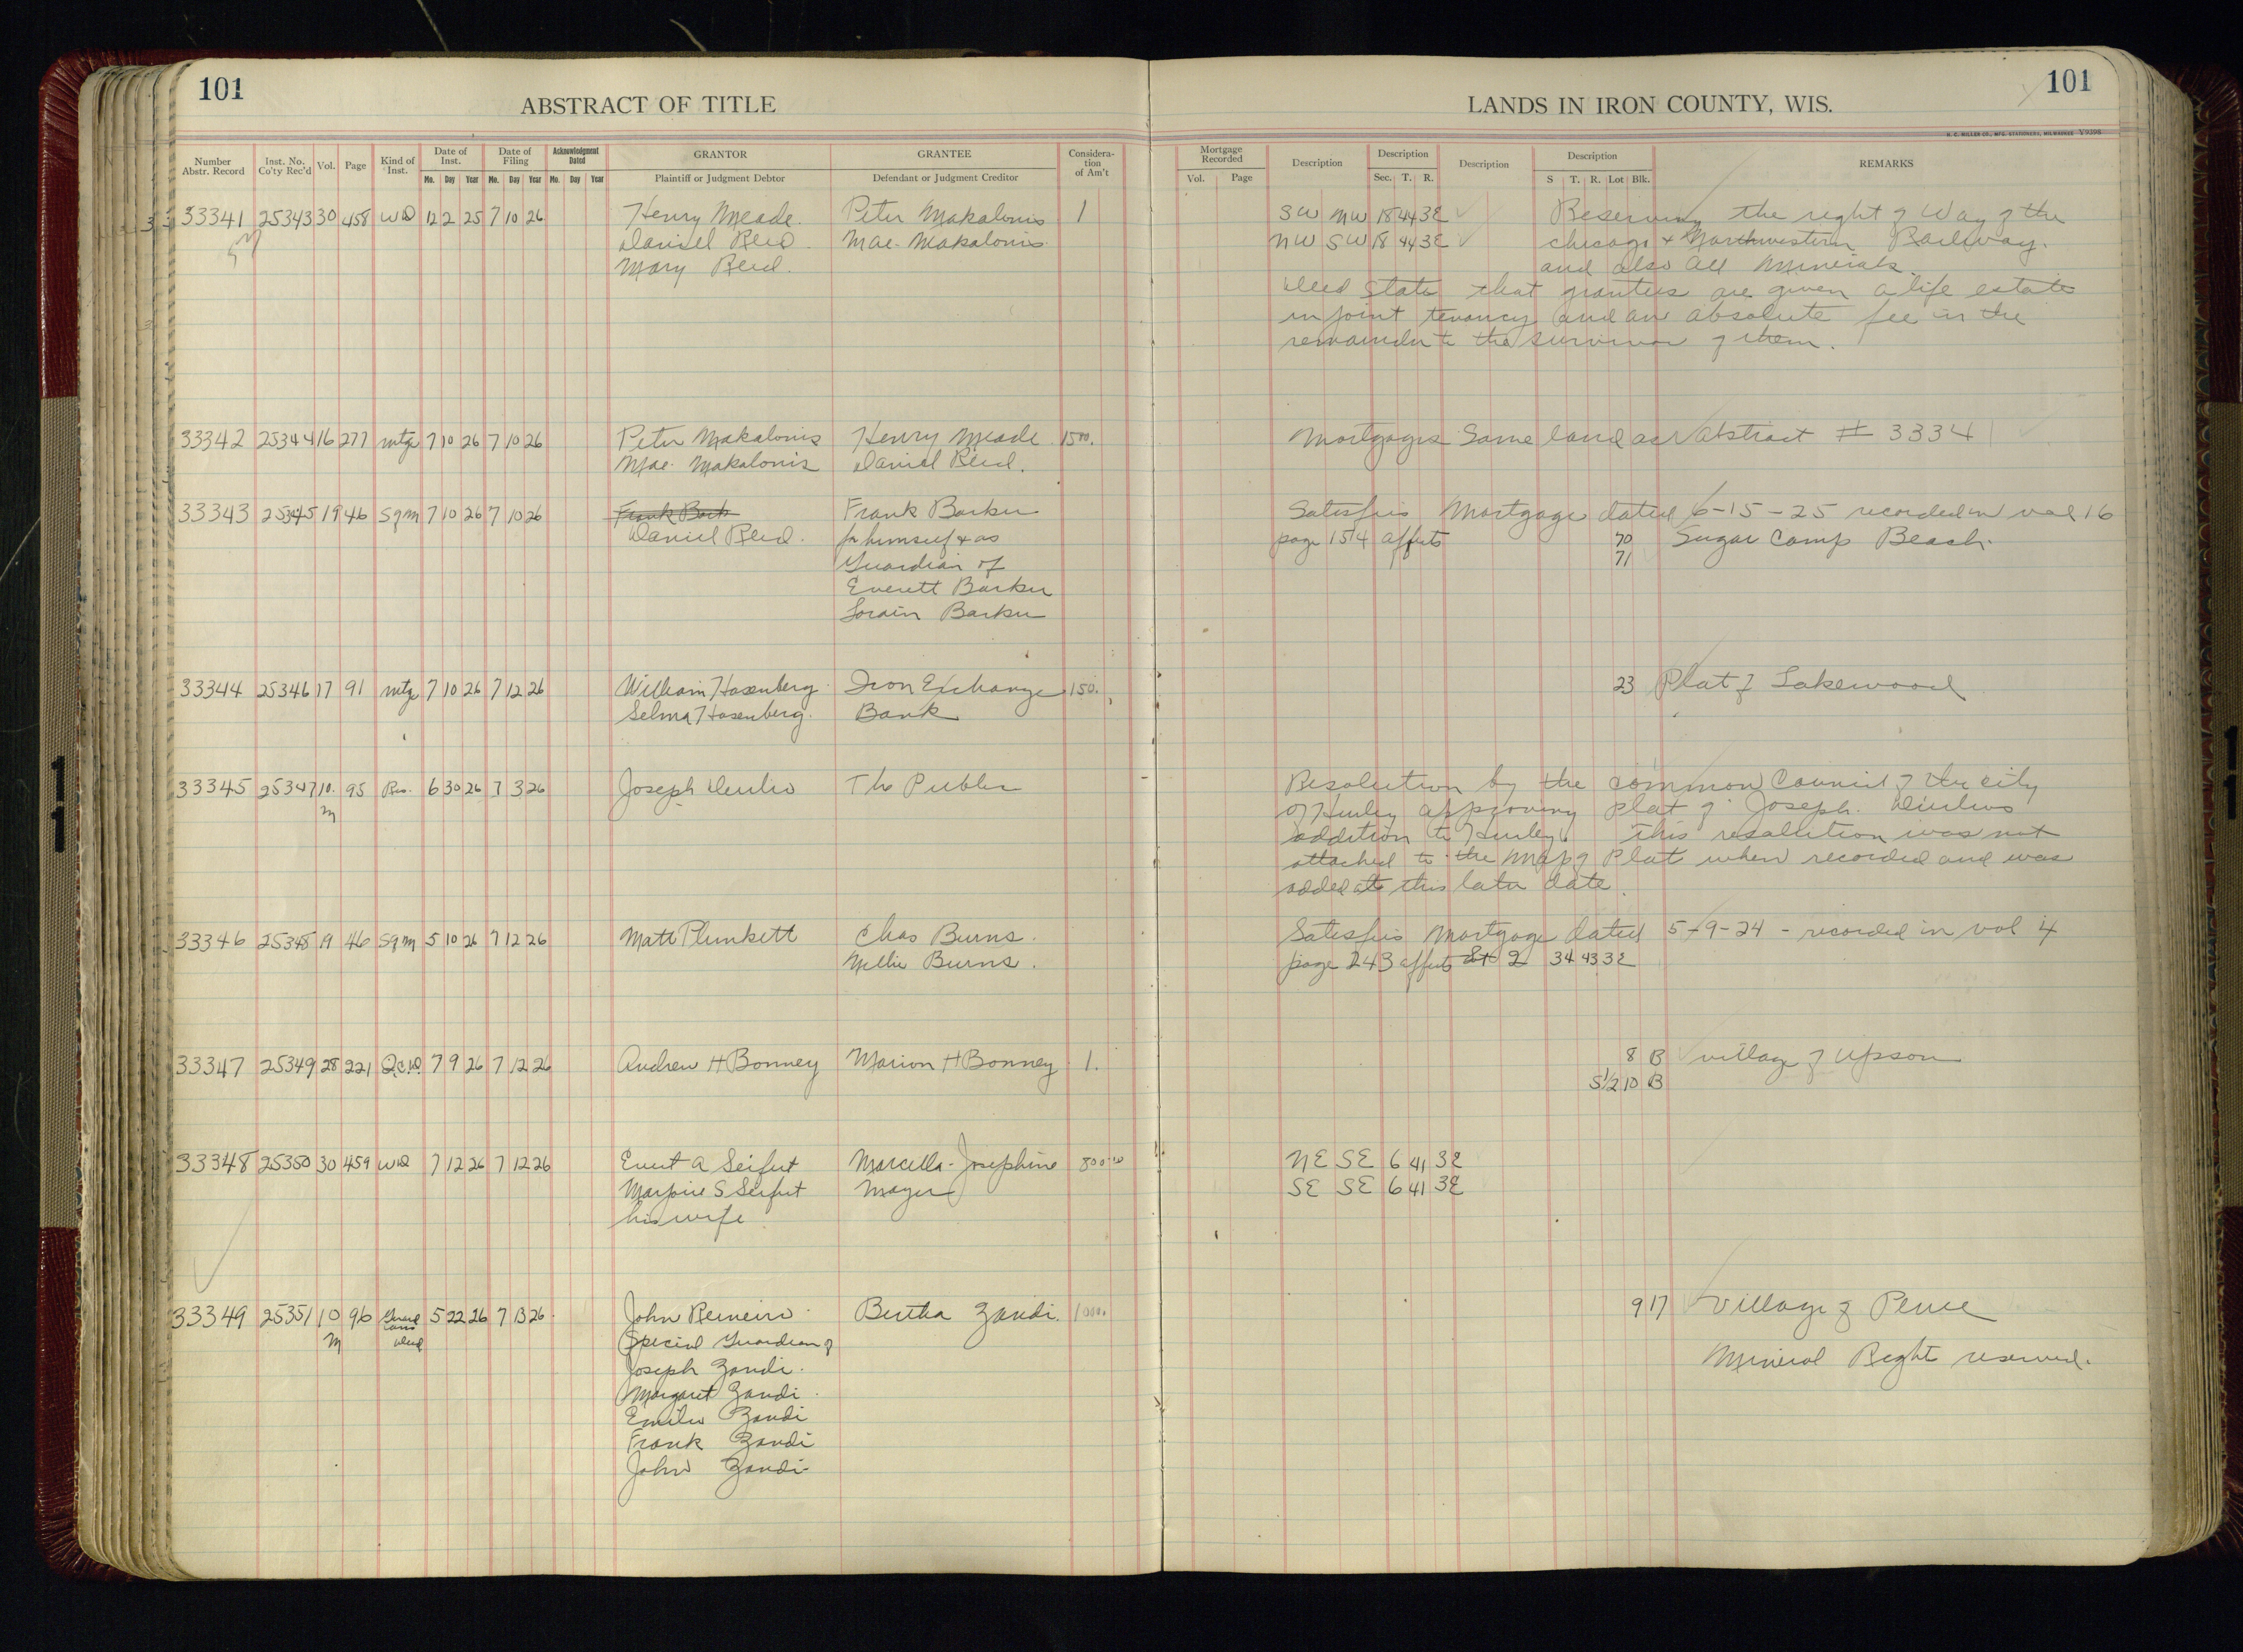 101
ABSTRACT OF TITLE
LANDS IN IRON COUNTY, WIS.
101
H. C. MILLER CO., MFG. STATIONERS, MILWAUKEE V9398
Number Abstr. Record Inst. No. Co'ty Rec'd Vol. Page Kind of Inst. Date of Inst. Mo. Day Year Date of Filing Mo. Day Year Acknowledgment Dated Mo. Day Year GRANTOR Plaintiff or Judgment Debtor GRANTEE Defendant or Judgment Creditor Considera-tion of Am't
Mortgage Recorded Vol. Page Description Description Sec. T. R. Description Description S T. R. Lot Blk. REMARKS
33341 25343 30 458 WD 12 2 25 7 10 26 Henry Meade. Peter Makalonis 1 SW NW 18 44 3E Reserving the right of Way of the
Daniel Reid Mae. Makalonis. NW SW 18 44 3E Chicago & Northwestern Railway.
Mary Reid. and also all Minerals.
Deed State that grantees are given a life estate
in joint tenancy and an absolute fee in the
remainder to the survivor of them.
33342 25344 16 277 mtge 7 10 26 7 10 26 Peter Makalonis Henry Meade 1500. Mortgages Same land as Abstract # 33341
Mae. Makalonis Daniel Reid.
33343 25345 19 46 Sqm 7 10 26 7 10 26 Frank Bark Frank Barker Satisfies Mortgage dated 6-15-25 recorded in vol 16
Daniel Reid. for himself & as page 154 affects 70 Sugar Camp Beach.
Guardian of 71
Everett Barker
Lorain Barker
33344 25346 17 91 mtge 7 10 26 7 12 26 William Hasenberg Iron Exchange 150. 23 Plat of Lakewood
Selma Hasenberg. Bank
33345 25347 10. 95 Res. 6 30 26 7 3 26 Joseph The Public Resolution by the common Council of the city
M of Hurley approving plat of Joseph.
addition to Hurley. This resolution was not
attached to the Map of Plat when recorded and was
added at this later date.
33346 25348 19 46 Sqm 5 10 26 7 12 26 Matt Plunkett Chas Burns. Satisfies Mortgage dated 5-9-24 - recorded in vol 4
Nellie Burns. page 243 affects Lot 2 34 43 3E
33347 25349 28 221 Q.C.D. 7 9 26 7 12 26 Andrew H Bonney Marion H Bonney 1. 8 B village of Upson
S½ 10 B
33348 25350 30 459 WD 7 12 26 7 12 26 Evert A Seifert Marcella Josephine 800.00 NE SE 6 41 3E
Marjorie S Seifert Mayer SE SE 6 41 3E
his wife
33349 25351 10 96 Guard 5 22 26 7 13 26 John Bertha Zandi. 1000. 9 17 Village of Pence
M Deed Special Guardian of
Joseph Zandi. Mineral Right reserved.
Margaret Zandi.
Emilio Zandi
Frank Zandi
John Zandi.